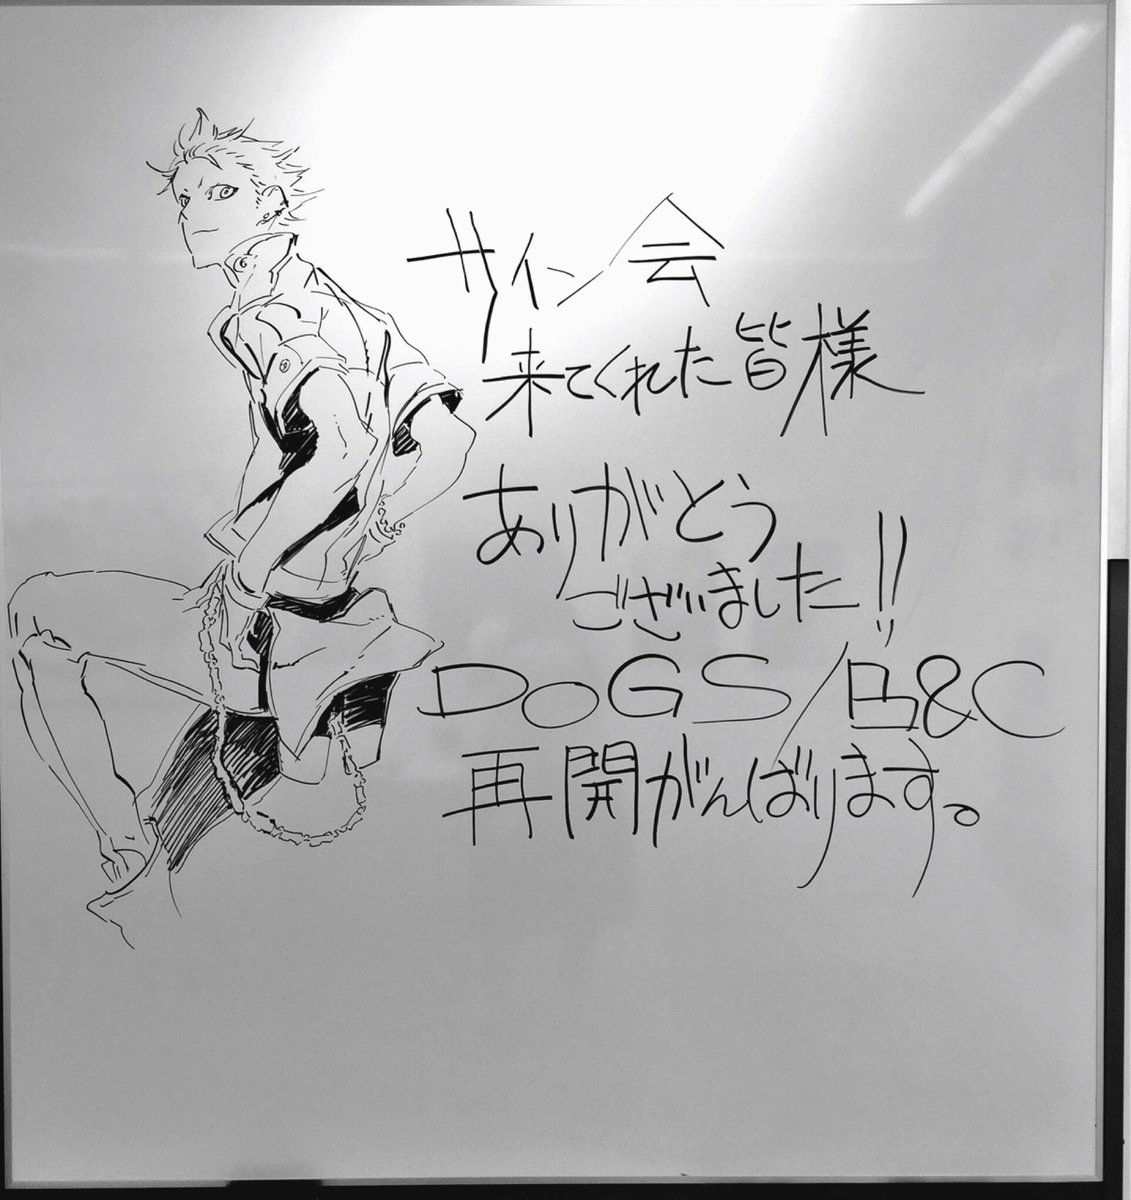 サイン会
来てくれた皆様
ありがとう
ございました!!
DOGS/B&C
再開がんばります。